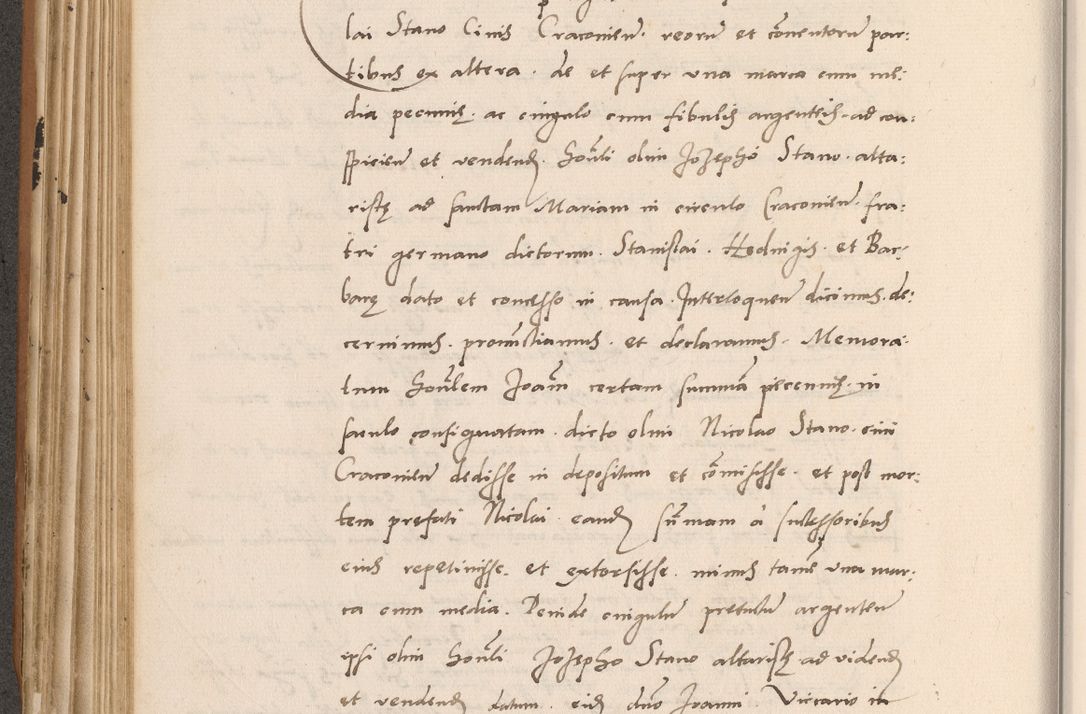 lai Stano Civis Cracovien̄. reorum et co͞nventorum par:
tibus ex altera. de et super una marca cum me:
dia pecunię. ac cingulo cum fibulis argenteis. ad con:
spicien̄ et vendend. Hon̄li olim Josepho Stano. alta:
ristę ad sanctam Mariam in circulo Cracovien̄. fra:
tri germano dictorum. Stanislai. Hedvigis. et Bar:
barę dato et concesso in causa. Interloquen̄ dicimus. de:
cernimus. pronunctiamus. et declaramus. Memora:
tum Hon̄lem Joan̄ certam summa͞ pecunię. in
saculo consignatam. dicto olim Nicolao Stano. civi
Cracovien̄ dedisse in depositum et co͞misisse. et post mor:
tem prefati Nicolai. eand su͞mam à successoribus
eius repetivisse. et extorsisse. minus tame͞ una mar:
ca cum media. Deinde cingulu͞ pretactu͞ argenteu͞
ipsi olim Hon̄li Josepho Stano altaristę ad vidend
et vendend datum. eid dn̄o Joanni Vicario in